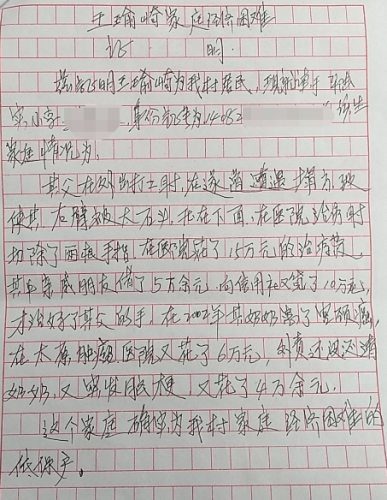 王瑜崎家庭经济困难
证 明
兹证明王瑜崎为我村居民，现就读于
实小学 身份证号为14052 该生
家庭情况为。
其父在外出打工时，在 遭遇 方，致
使其右臂被大石头压在下面，在医院治病时
切除了两根手指，在医院花了15万元的治病费，
其中亲戚朋友借了5万余元，向信用社又贷了10万元，
才治好了其父的手，在2002年其奶奶患了
在太原肿瘤医院又花了6万元，外债还没还清
奶奶又突发脑梗，又花了4万余元。
这个家庭确实为我村家庭经济困难的
低保户。